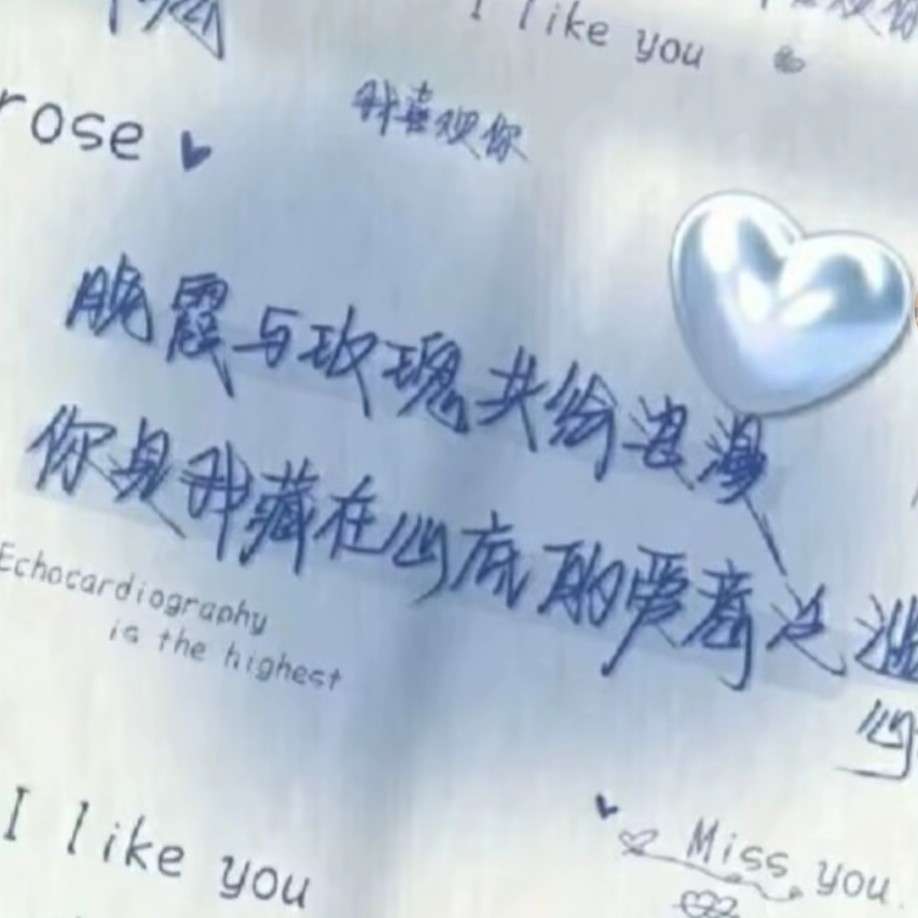 I like you
rose
我喜欢你
晚霞与玫瑰共绘浪漫
你是我藏在心底的爱意
Echocardiography
is the highest
I like you
Miss you.